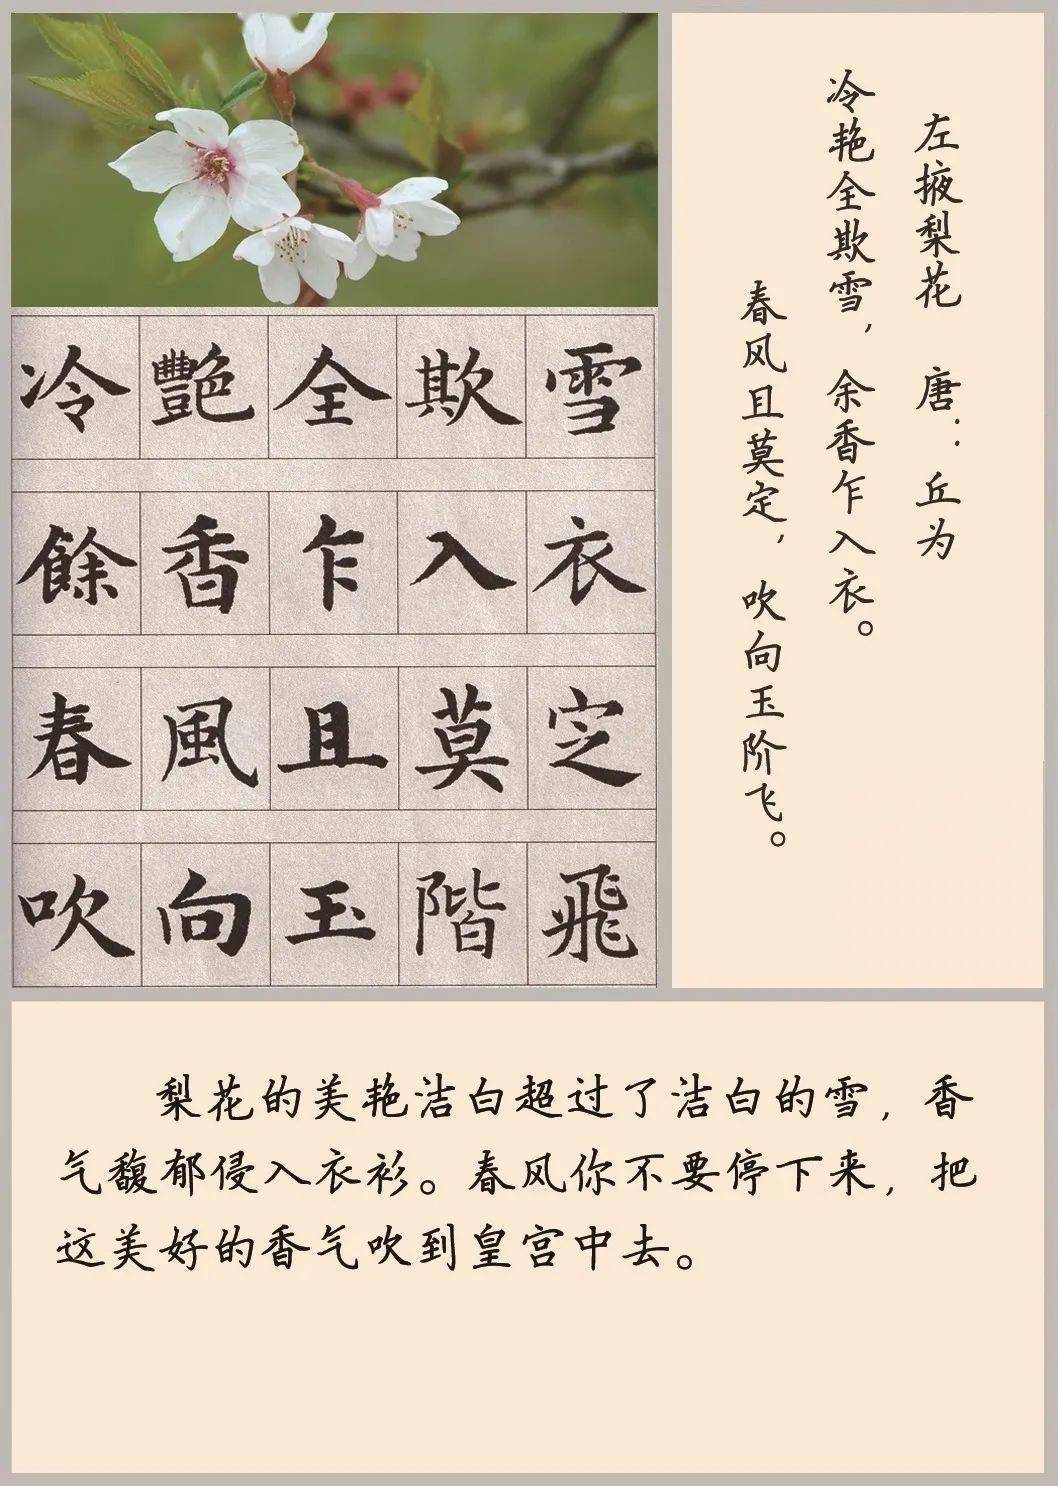 冷艷全欺雪
餘香乍入衣
春風且莫定
吹向玉階飛
左掖梨花 唐：丘为
冷艳全欺雪，余香乍入衣。
春风且莫定，吹向玉阶飞。
梨花的美艳洁白超过了洁白的雪，香
气馥郁侵入衣衫。春风你不要停下来，把
这美好的香气吹到皇宫中去。